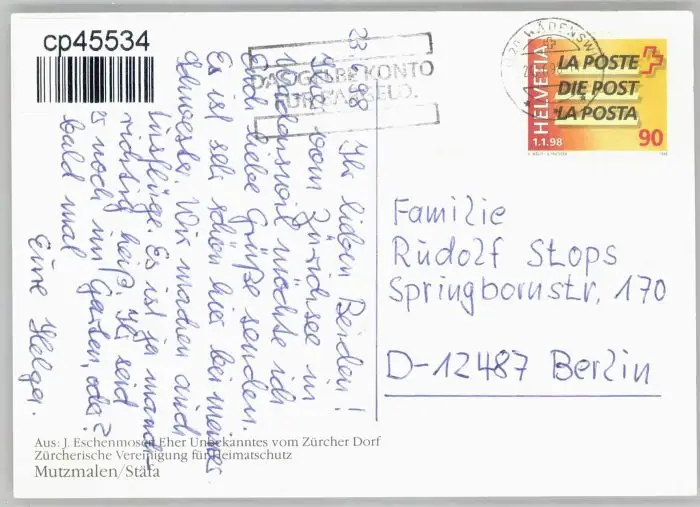 cp45534
23.6.98
Ihr lieben Beiden!
vom Zürichsee in
Wädenswil möchte ich
Euch liebe Grüße senden.
Es ist sehr schön hier bei meiner
Schwester. Wir machen auch
Ausflüge. Es ist ja manch-
richtig heiß. Ihr seid
es noch im Garten, oder?
bald mal
Eure Helga.
DAS GELBE KONTO
HELVETIA
1.1.98
LA POSTE
DIE POST
LA POSTA
90
WÄDENSWIL
Familie
Rudolf Stops
Springbornstr. 170
D-12487 Berlin
Aus: J. Eschenmoser, Eher Unbekanntes vom Zürcher Dorf
Zürcherische Vereinigung für Heimatschutz
Mutzmalen/Stäfa